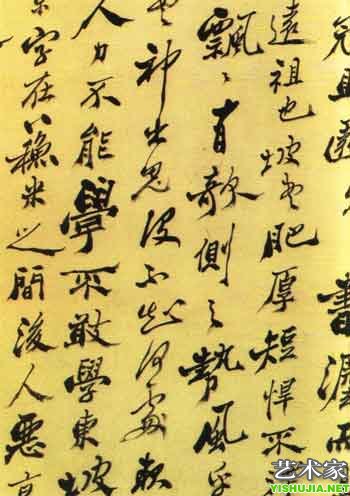 且園 書
遠祖也坡書肥厚短悍不
飄〻有欹側之勢風乎
神出鬼没不知何處
人力不能學不敢學東坡
京字在蘓米之間後人惡京
艺术家
YISHUJIA.NET